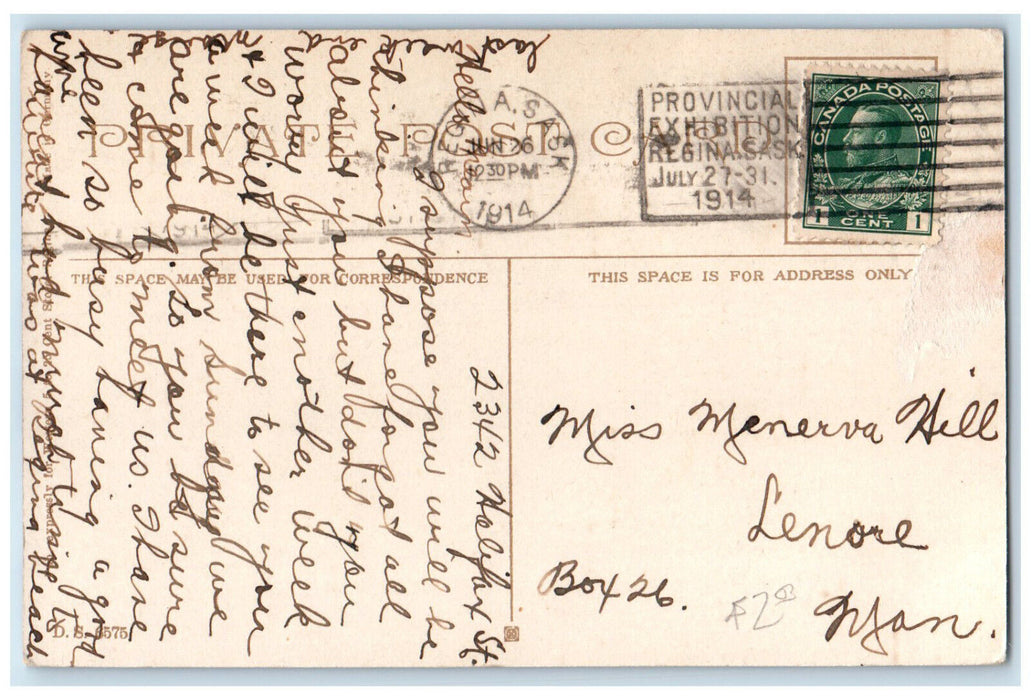 PRIVATE POST CARD
REGINA, SASK
JUN 26
12 30 PM
1914
PROVINCIAL
EXHIBITION
REGINA. SASK.
JULY 27-31.
1914
CANADA POSTAGE
1 ONE CENT 1
THIS SPACE MAY BE USED FOR CORRESPONDENCE
THIS SPACE IS FOR ADDRESS ONLY
2342 Halifax St.
Hello
I suppose you will be
thinking I have forgot all
about you but don't you
worry just another week
& I will be there to see you
a week from Sunday we
are going. So you be sure
& come & meet us. I have
been so busy having a good
time
I was at Regina Beach
last week
end
Miss Menerva Hill
Lenore
Box 26.
Man.
$2 00
D. S. 6575